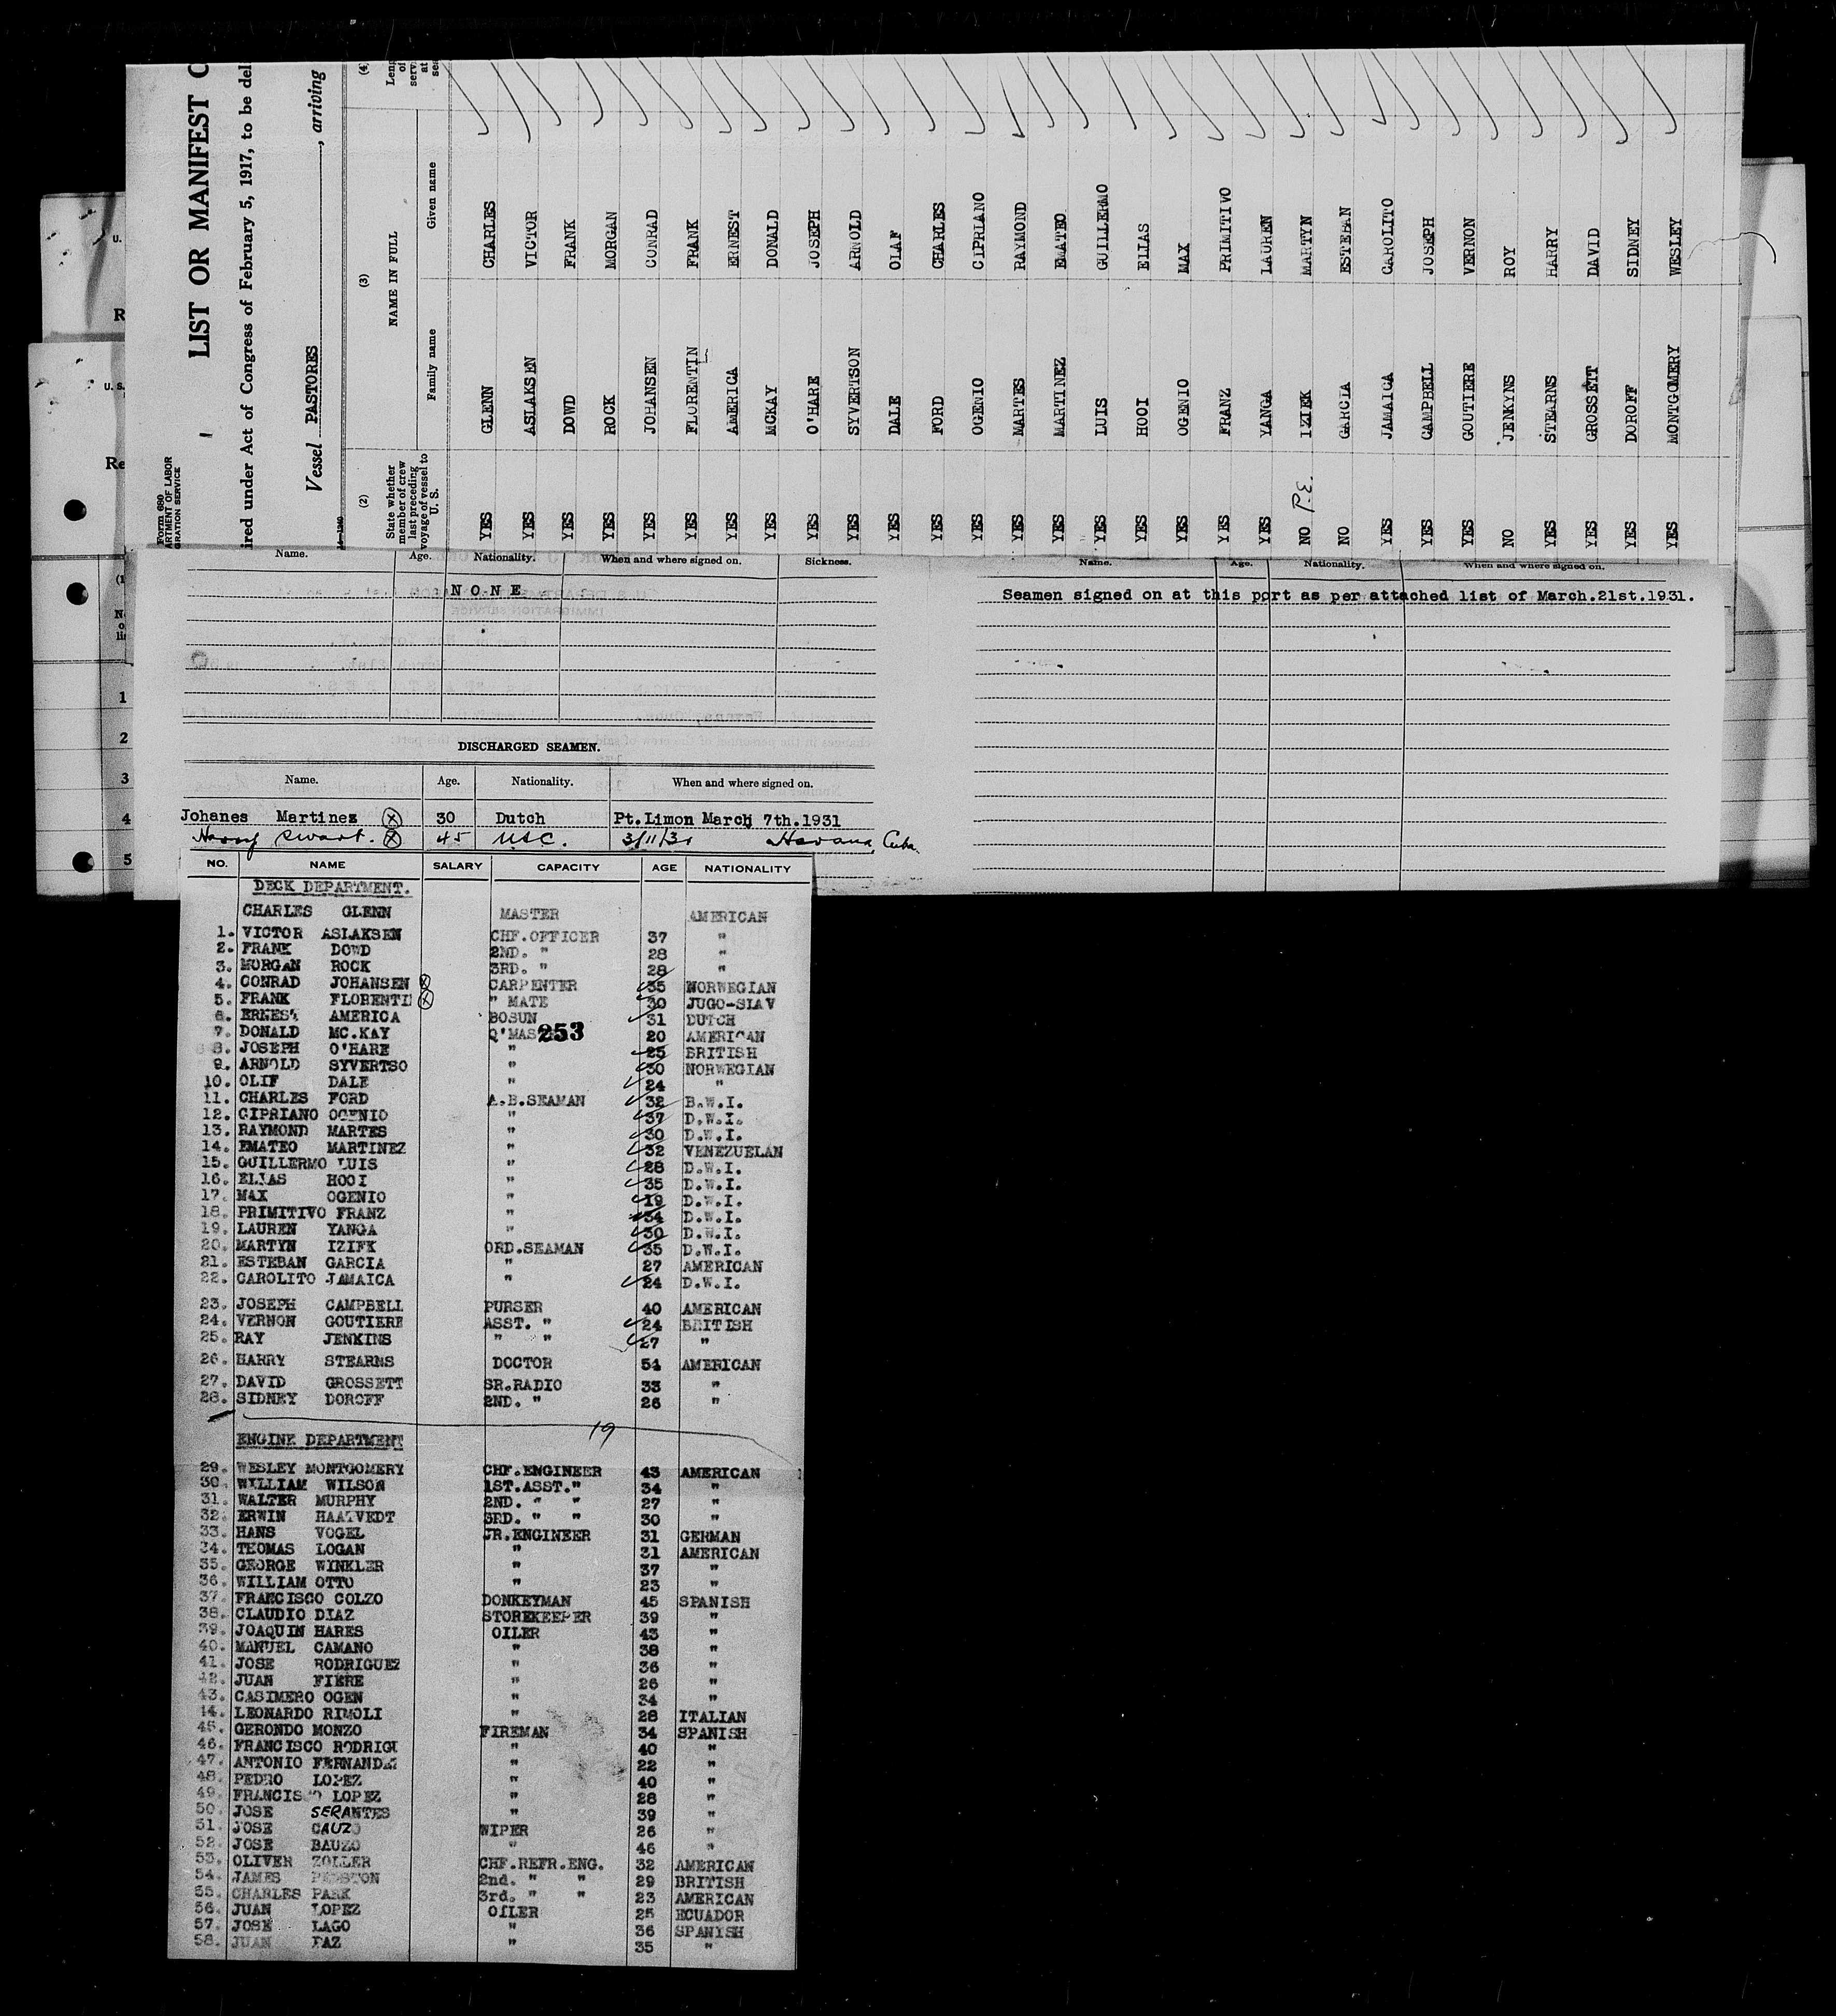 Form 680
ARTMENT OF LABOR
GRATION SERVICE
LIST OR MANIFEST
ired under Act of Congress of February 5, 1917, to be del
Vessel PASTORES, arriving
14-1240
(2) (3) (4)
State whether member of crew last preceding voyage of vessel to U. S.
NAME IN FULL
Family name Given name
Leng of serv at sea
YES GLENN CHARLES
YES ASLAKSEN VICTOR
YES DOWD FRANK
YES ROCK MORGAN
YES JOHANSEN CONRAD
YES FLORENTIN FRANK
YES AMERICA ERNEST
YES MCKAY DONALD
YES O'HARE JOSEPH
YES SYVERTSON ARNOLD
YES DALE OLAF
YES FORD CHARLES
YES OGENIO CIPRIANO
YES MARTES RAYMOND
YES MARTINEZ EMATEO
YES LUIS GUILLERMO
YES HOOI ELIAS
YES OGENIO MAX
YES FRANZ PRIMITIVO
YES YANGA LAUREN
NO IZIEK MARTYN
NO GARCIA ESTEBAN
YES JAMAICA CAROLITO
YES CAMPBELL JOSEPH
YES GOUTIERE VERNON
NO JENKYNS ROY
YES STEARNS HARRY
YES GROSSETT DAVID
YES DOROFF SIDNEY
YES MONTGOMERY WESLEY
U.
R
U. S.
Re
(1
No
o
li
1
2
3
4
5
Name. Age. Nationality. When and where signed on. Sickness.
NONE
Name. Age. Nationality. When and where signed on.
Seamen signed on at this port as per attached list of March.21st.1931.
DISCHARGED SEAMEN.
Name. Age. Nationality. When and where signed on.
Johanes Martinez 30 Dutch Pt.Limon March 7th.1931
Harry Swart. 45 USC. 3/11/31 Havana, Cuba.
NO. NAME SALARY CAPACITY AGE NATIONALITY
DECK DEPARTMENT.
CHARLES GLENN MASTER AMERICAN
1. VICTOR ASLAKSEN CHF.OFFICER 37 "
2. FRANK DOWD 2ND. " 28 "
3. MORGAN ROCK 3RD. " 28 "
4. CONRAD JOHANSEN CARPENTER 35 NORWEGIAN
5. FRANK FLORENTI " MATE 30 JUGO-SLAV
6. ERNEST AMERICA BOSUN 31 DUTCH
7. DONALD MC.KAY Q'MAS 253 20 AMERICAN
8. JOSEPH O'HARE " 25 BRITISH
9. ARNOLD SYVERTSO " 30 NORWEGIAN
10. OLIF DALE " 24 "
11. CHARLES FORD A.B.SEAMAN 32 B.W.I.
12. CIPRIANO OGENIO " 37 D.W.I.
13. RAYMOND MARTES " 30 D.W.I.
14. EMATEO MARTINEZ " 32 VENEZUELAN
15. GUILLERMO LUIS " 28 D.W.I.
16. ELIAS HOOI " 35 D.W.I.
17. MAX OGENIO " 19 D.W.I.
18. PRIMITIVO FRANZ " 34 D.W.I.
19. LAUREN YANGA " 30 D.W.I.
20. MARTYN IZIEK ORD.SEAMAN 35 D.W.I.
21. ESTEBAN GARCIA " 27 AMERICAN
22. CAROLITO JAMAICA " 24 D.W.I.
23. JOSEPH CAMPBELL PURSER 40 AMERICAN
24. VERNON GOUTIERE ASST. " 24 BRITISH
25. RAY JENKINS " " 27 "
26. HARRY STEARNS DOCTOR 54 AMERICAN
27. DAVID GROSSETT SR.RADIO 33 "
28. SIDNEY DOROFF 2ND. " 26 "
19
ENGINE DEPARTMENT
29. WESLEY MONTGOMERY CHF.ENGINEER 43 AMERICAN
30. WILLIAM WILSON 1ST.ASST." 34 "
31. WALTER MURPHY 2ND. " " 27 "
32. ERWIN HAATVEDT 3RD. " " 30 "
33. HANS VOGEL JR.ENGINEER 31 GERMAN
34. THOMAS LOGAN " 31 AMERICAN
35. GEORGE WINKLER " 37 "
36. WILLIAM OTTO " 23 "
37. FRANCISCO COLZO DONKEYMAN 45 SPANISH
38. CLAUDIO DIAZ STOREKEEPER 39 "
39. JOAQUIN HARES OILER 43 "
40. MANUEL CAMANO " 38 "
41. JOSE RODRIGUEZ " 36 "
42. JUAN FIERE " 26 "
43. CASIMERO OGEN " 34 "
44. LEONARDO RIMOLI " 28 ITALIAN
45. GERONDO MONZO FIREMAN 34 SPANISH
46. FRANCISCO RODRIGU " 40 "
47. ANTONIO FERNANDEZ " 22 "
48. PEDRO LOPEZ " 40 "
49. FRANCISCO LOPEZ " 28 "
50. JOSE SERANTES " 39 "
51. JOSE CAUZO WIPER 26 "
52. JOSE BAUZO " 46 "
53. OLIVER ZOLLER CHF.REFR.ENG. 32 AMERICAN
54. JAMES PRESTON 2nd. " " 29 BRITISH
55. CHARLES PARK 3rd. " " 23 AMERICAN
56. JUAN LOPEZ OILER 25 ECUADOR
57. JOSE LAGO " 36 SPANISH
58. JUAN PAZ " 35 "